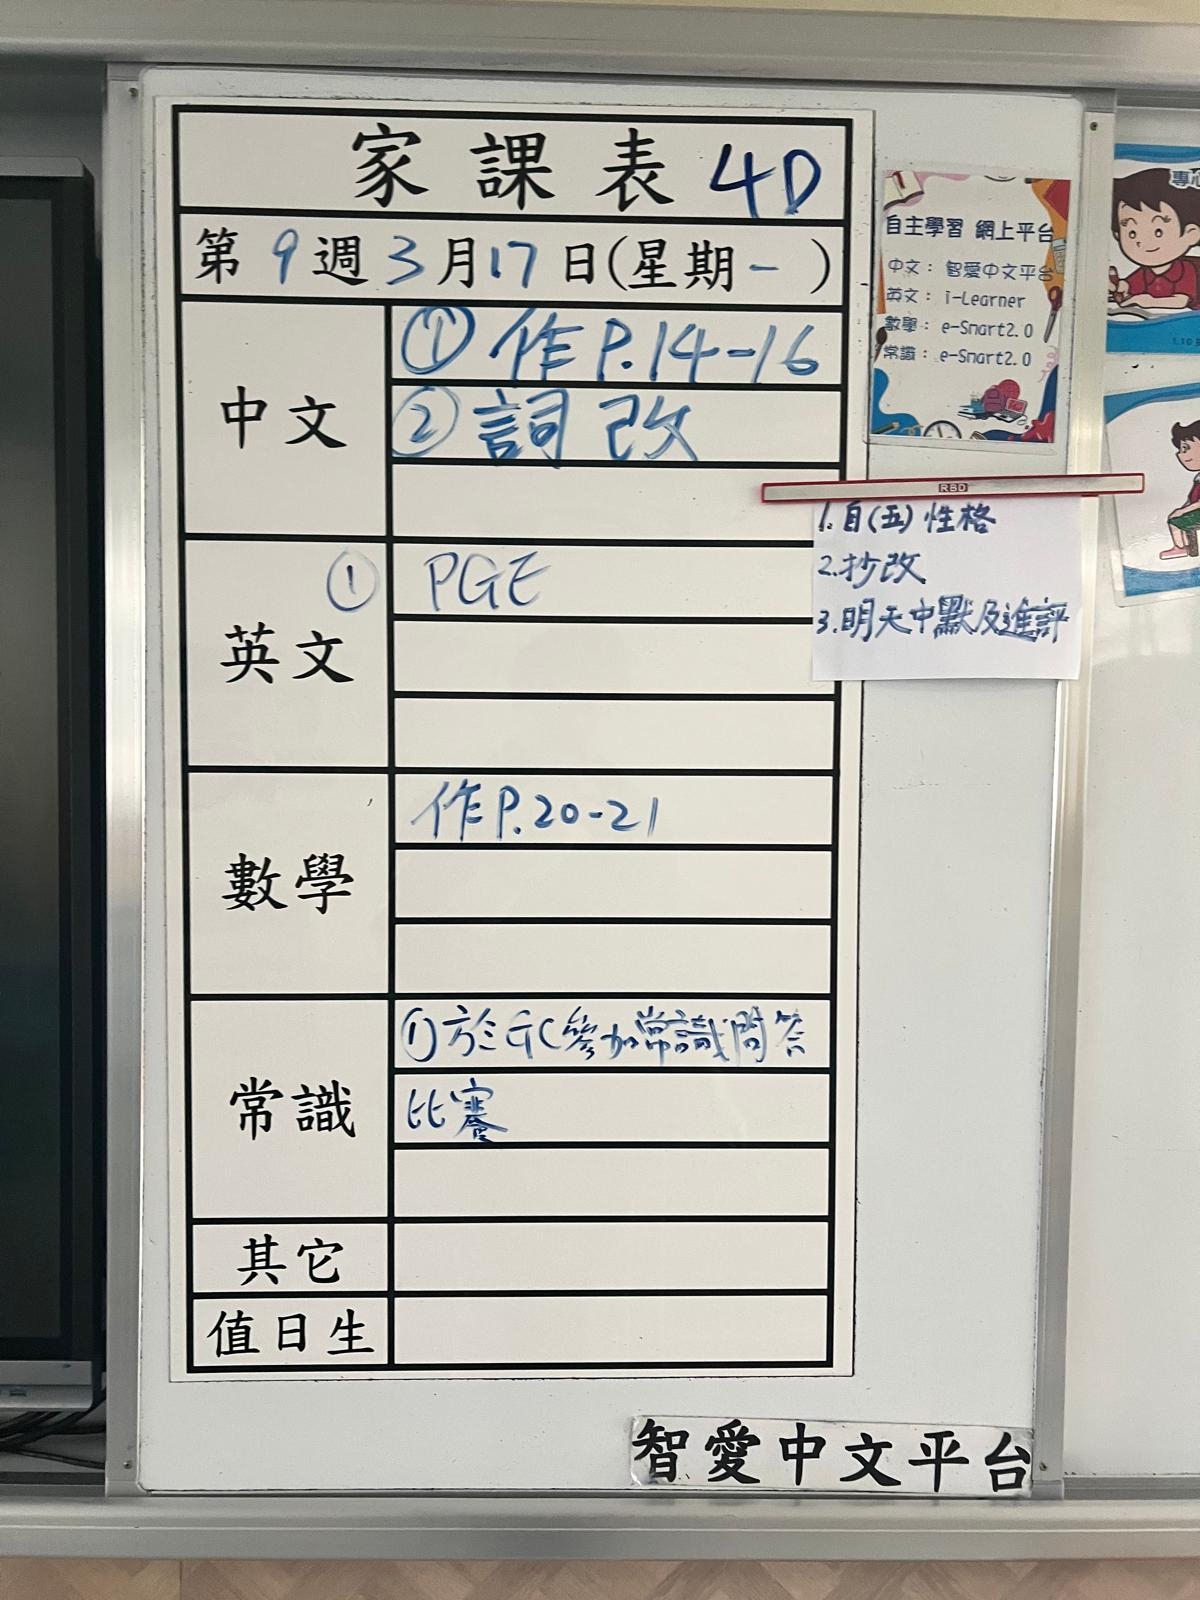 家課表 4D
第9週3月17日(星期一)
中文
① 作 P.14-16
② 詞改
英文
① PGE
數學
作P.20-21
常識
①於GC參加常識問答
比賽
其它
值日生
自主學習 網上平台
中文：智愛中文平台
英文：i-Learner
數學：e-Smart2.0
常識：e-Smart2.0
RBD
1.自(五)性格
2.抄改
3.明天中默及進評
智愛中文平台
專心